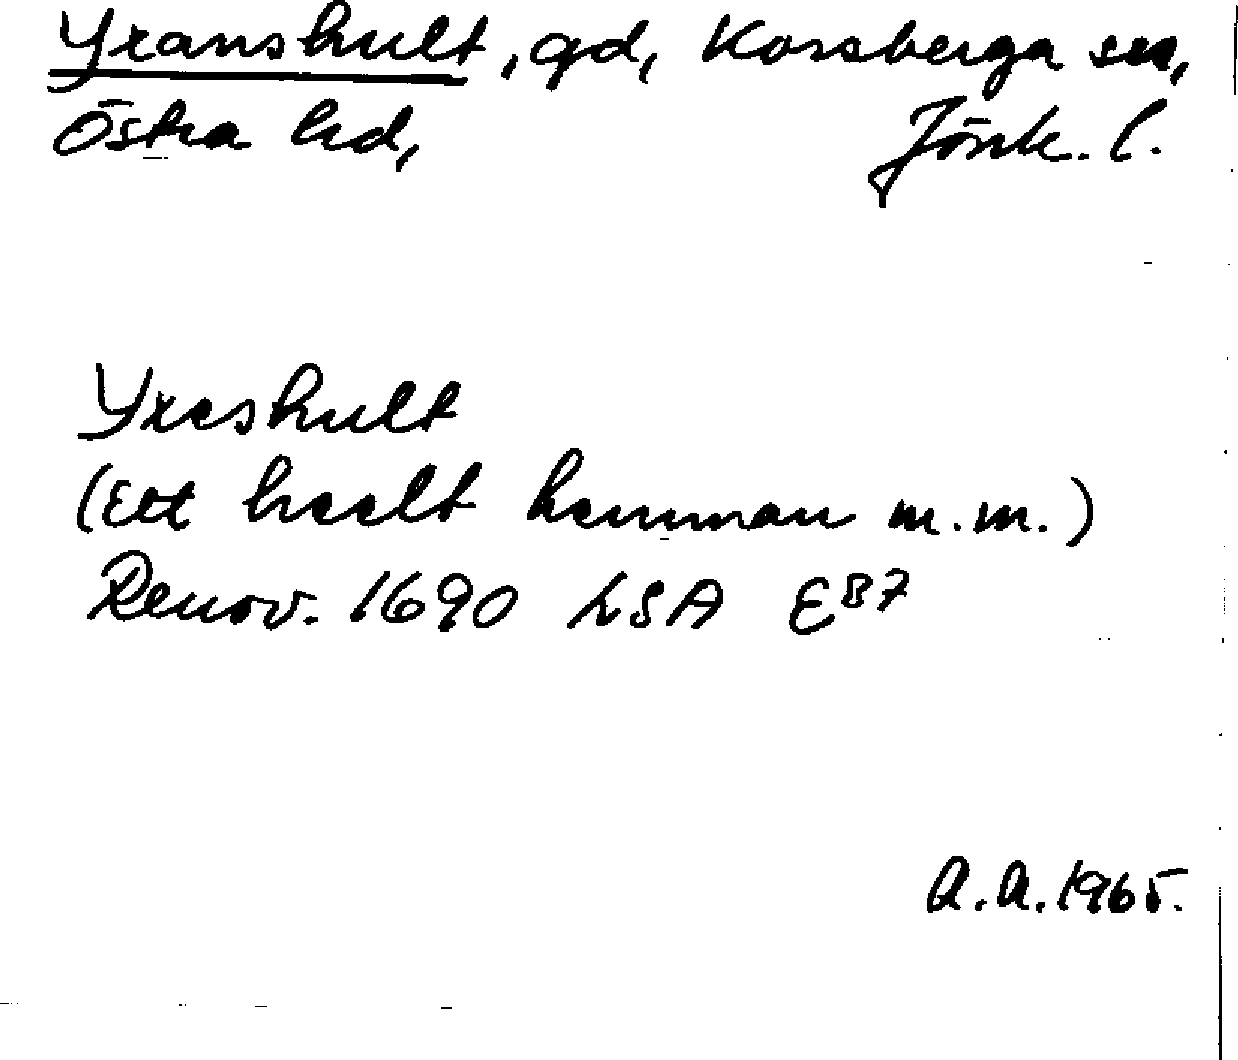 Yxanshult, gd, Korsberga sn,
Östra hd, Jönk. l.
Yxeshult
(Ett heelt hemman m.m.)
Renov. 1690 LSA E B7
A.A. 1965.